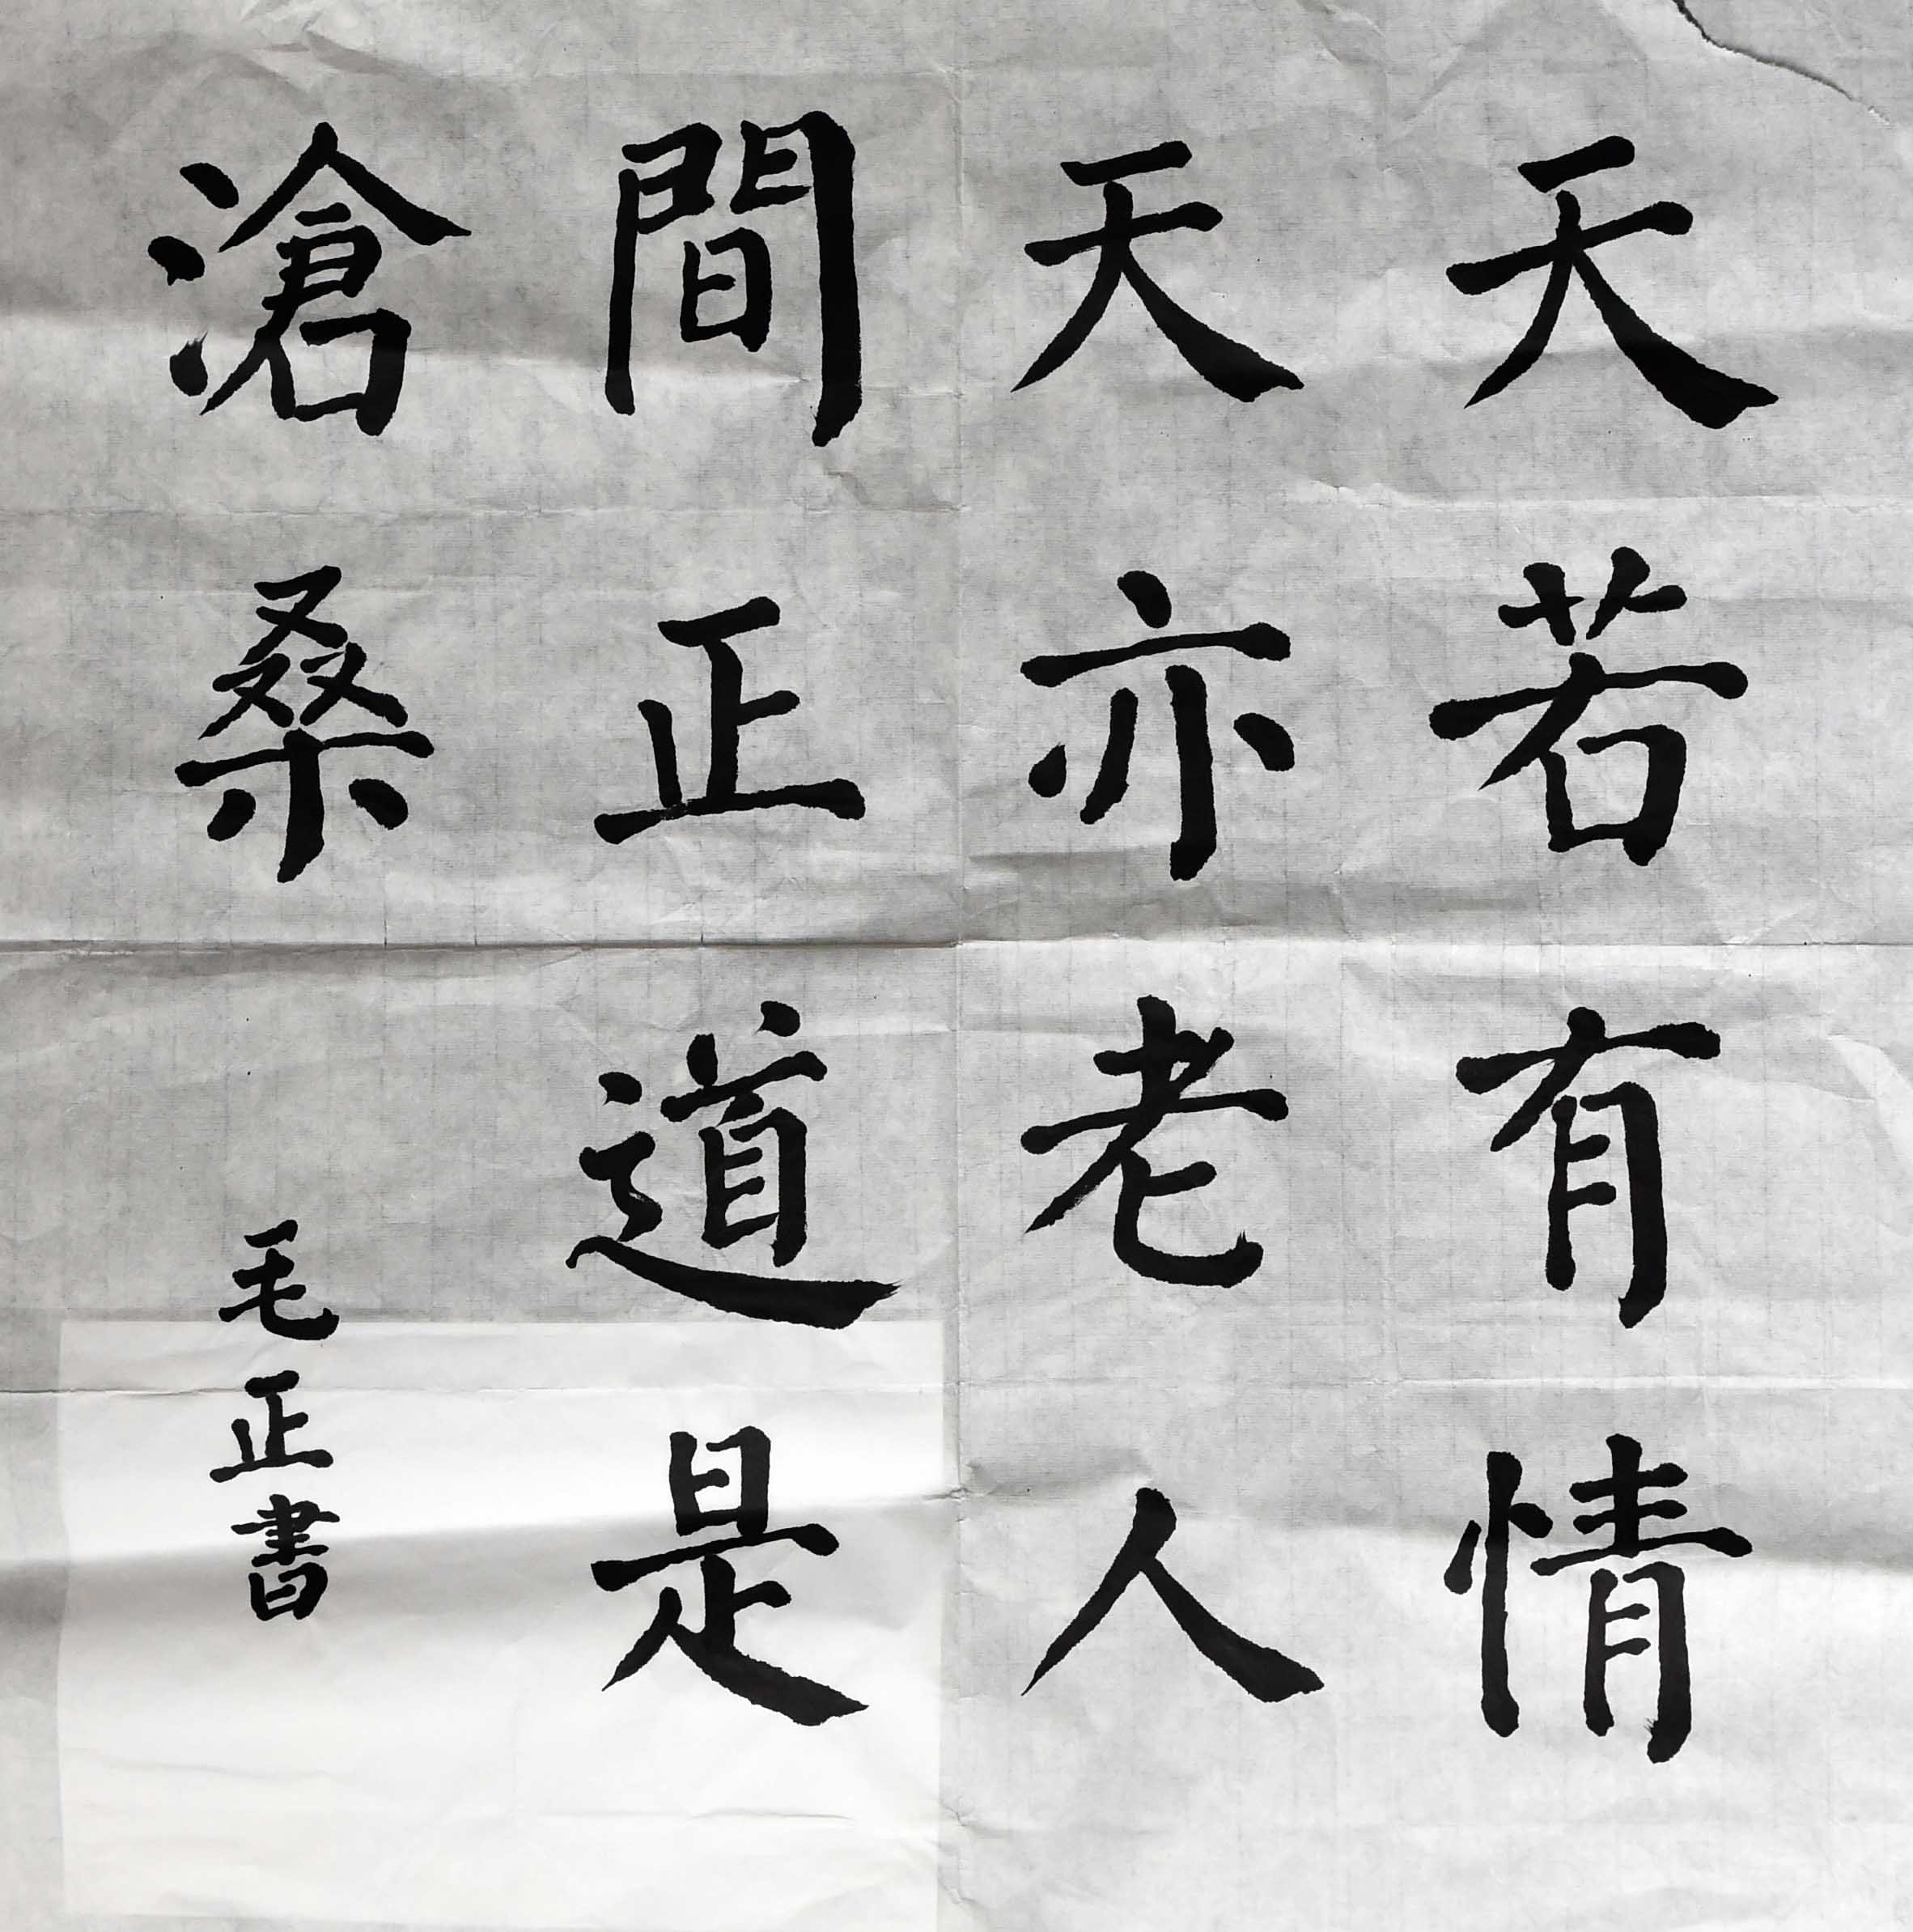 天若有情
天亦老人
間正道是
滄桑
毛正書